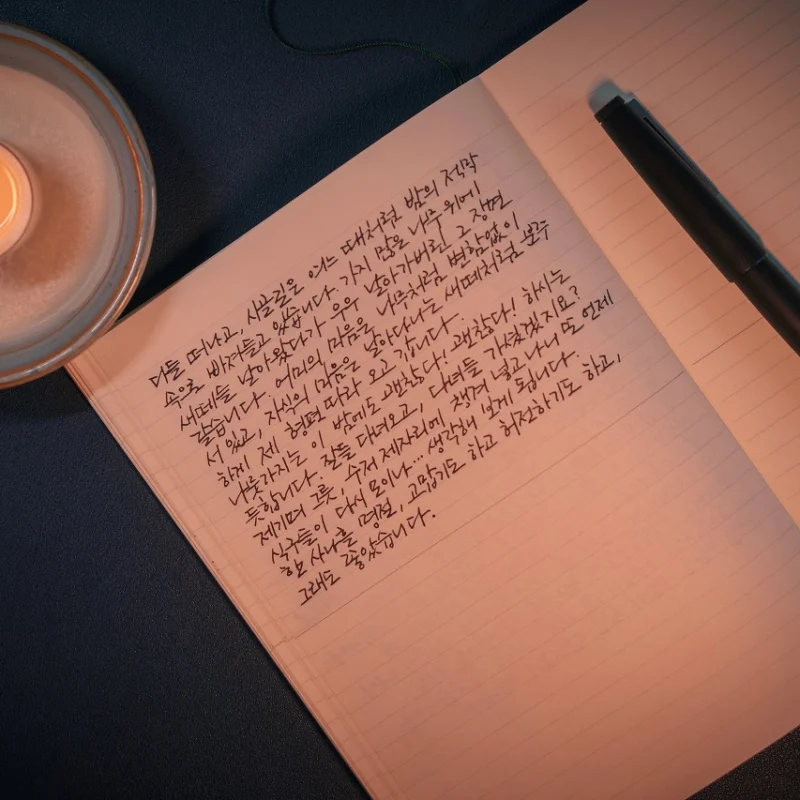 다들 떠나고, 시골길은 여느 때처럼 밤의 적막
속으로 빠져들고 있습니다. 가지 많은 나무 위에
새떼들 날아왔다가 우우 날아가버린 그 장면
같습니다. 어미의 마음은 나무처럼 변함없이
서 있고, 자식의 마음은 날아다니는 새떼처럼 분주
하게 제 형편 따라 오고 갑니다.
나뭇가지는 이 밤에도 괜찮다! 괜찮다! 하시는
듯합니다. 잘들 다녀오고, 다녀들 가셨겠지요?
제기며 그릇, 수저 제자리에 챙겨 넣고 나니 또 언제
식구들이 다시 모이나... 생각해 보게 됩니다.
한 사나흘 명절, 고맙기도 하고 허전하기도 하고,
그래도 좋았습니다.